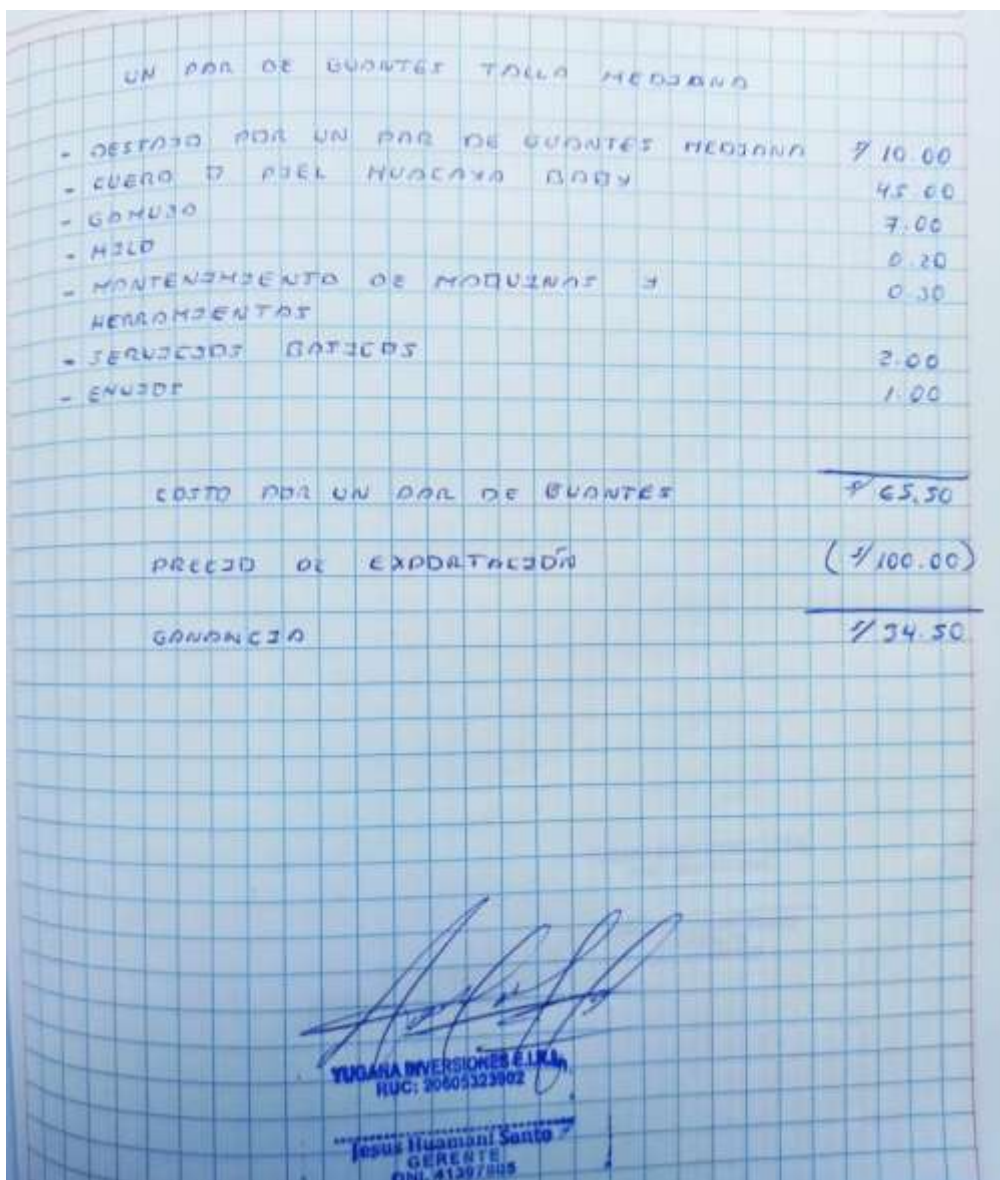 UN PAR DE GUANTES TALLA MEDIANA
- DESTAJO POR UN PAR DE GUANTES MEDIANA S/ 10.00
- CUERO O PIEL HUACAYA BABY 45.00
- GAMUZO 7.00
- HILO 0.20
- MANTENIMIENTO DE MAQUINAS Y 0.30
HERRAMIENTAS
- SERVICIOS BASICOS 2.00
- ENVIOS 1.00
COSTO POR UN PAR DE GUANTES S/ 65.50
PRECIO DE EXPORTACIÓN (S/ 100.00)
GANANCIA S/ 34.50
YUGANA INVERSIONES E.I.R.L.
RUC: 20605323902
Jesus Huamani Santo
GERENTE
DNI. 41397805